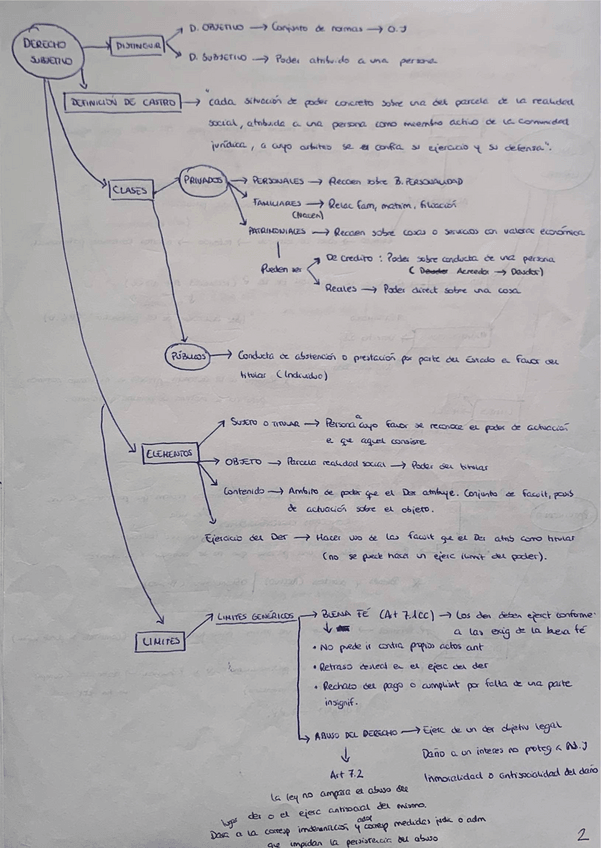 DERECHO
SUBJETIVO
DISTINGUIR
D. OBJETIVO → Conjunto de normas → O.J
D. SUBJETIVO → Poder atribuido a una persona
DEFINICIÓN DE CASTRO → "cada situación de poder concreto sobre una del parcela de la realidad
social, atribuida a una persona como miembro activo de la comunidad
jurídica, a cuyo arbitrio se confía su ejercicio y su defensa".
CLASES
PRIVADOS
→ PERSONALES → Recaen sobre B. PERSONALIDAD
FAMILIARES → Relac fam, matrim, filiación
(Nacen)
PATRIMONIALES → Recaen sobre cosas o servicios con valorac económica
Pueden ser
De credito : Poder sobre conducta de una persona
(Acreedor → Deudor)
Reales → Poder direct sobre una cosa
PÚBLICOS → Conducta de abstención o prestación por parte del Estado a favor del
titular (individuo)
ELEMENTOS
SUJETO O TITULAR → Persona a cuyo favor se reconoce el poder de actuación
e que aquel consiste
OBJETO → Parcela realidad social → Poder del titular
Contenido → Ambito de poder que el Der atribuye. Conjunto de facult, posib
de actuación sobre el objeto.
Ejercicio del Der → Hacer uso de las facult que el Der atrib como titular
(no se puede hacer un ejerc ilimit del poder).
LIMITES
LIMITES GENÉRICOS
→ BUENA FÉ (Art 7.1CC) → Los der deben ejerct conforme
a las exig de la buena fé
• No puede ir contra propios actos ant
• Retraso desleal en el ejerc del der
• Rechazo del pago o cumplimt por falta de una parte
insignif.
→ ABUSO DEL DERECHO → Ejerc de un der objetiv legal
Daño a un interes no proteg
Inmoralidad o antisocialidad del daño
Art 7.2
La ley no ampara el abuso del
der o el ejerc antisocial del mismo.
Dara a la corresp indemnización y corresp medidas o adm
que impidan la persistencia del abuso
2